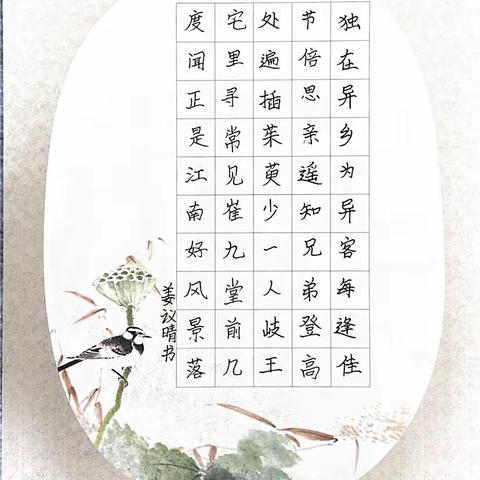 独在异乡为异客每逢佳
节倍思亲遥知兄弟登高
处遍插茱萸少一人岐王
宅里寻常见崔九堂前几
度闻正是江南好风景落
姜议晴书